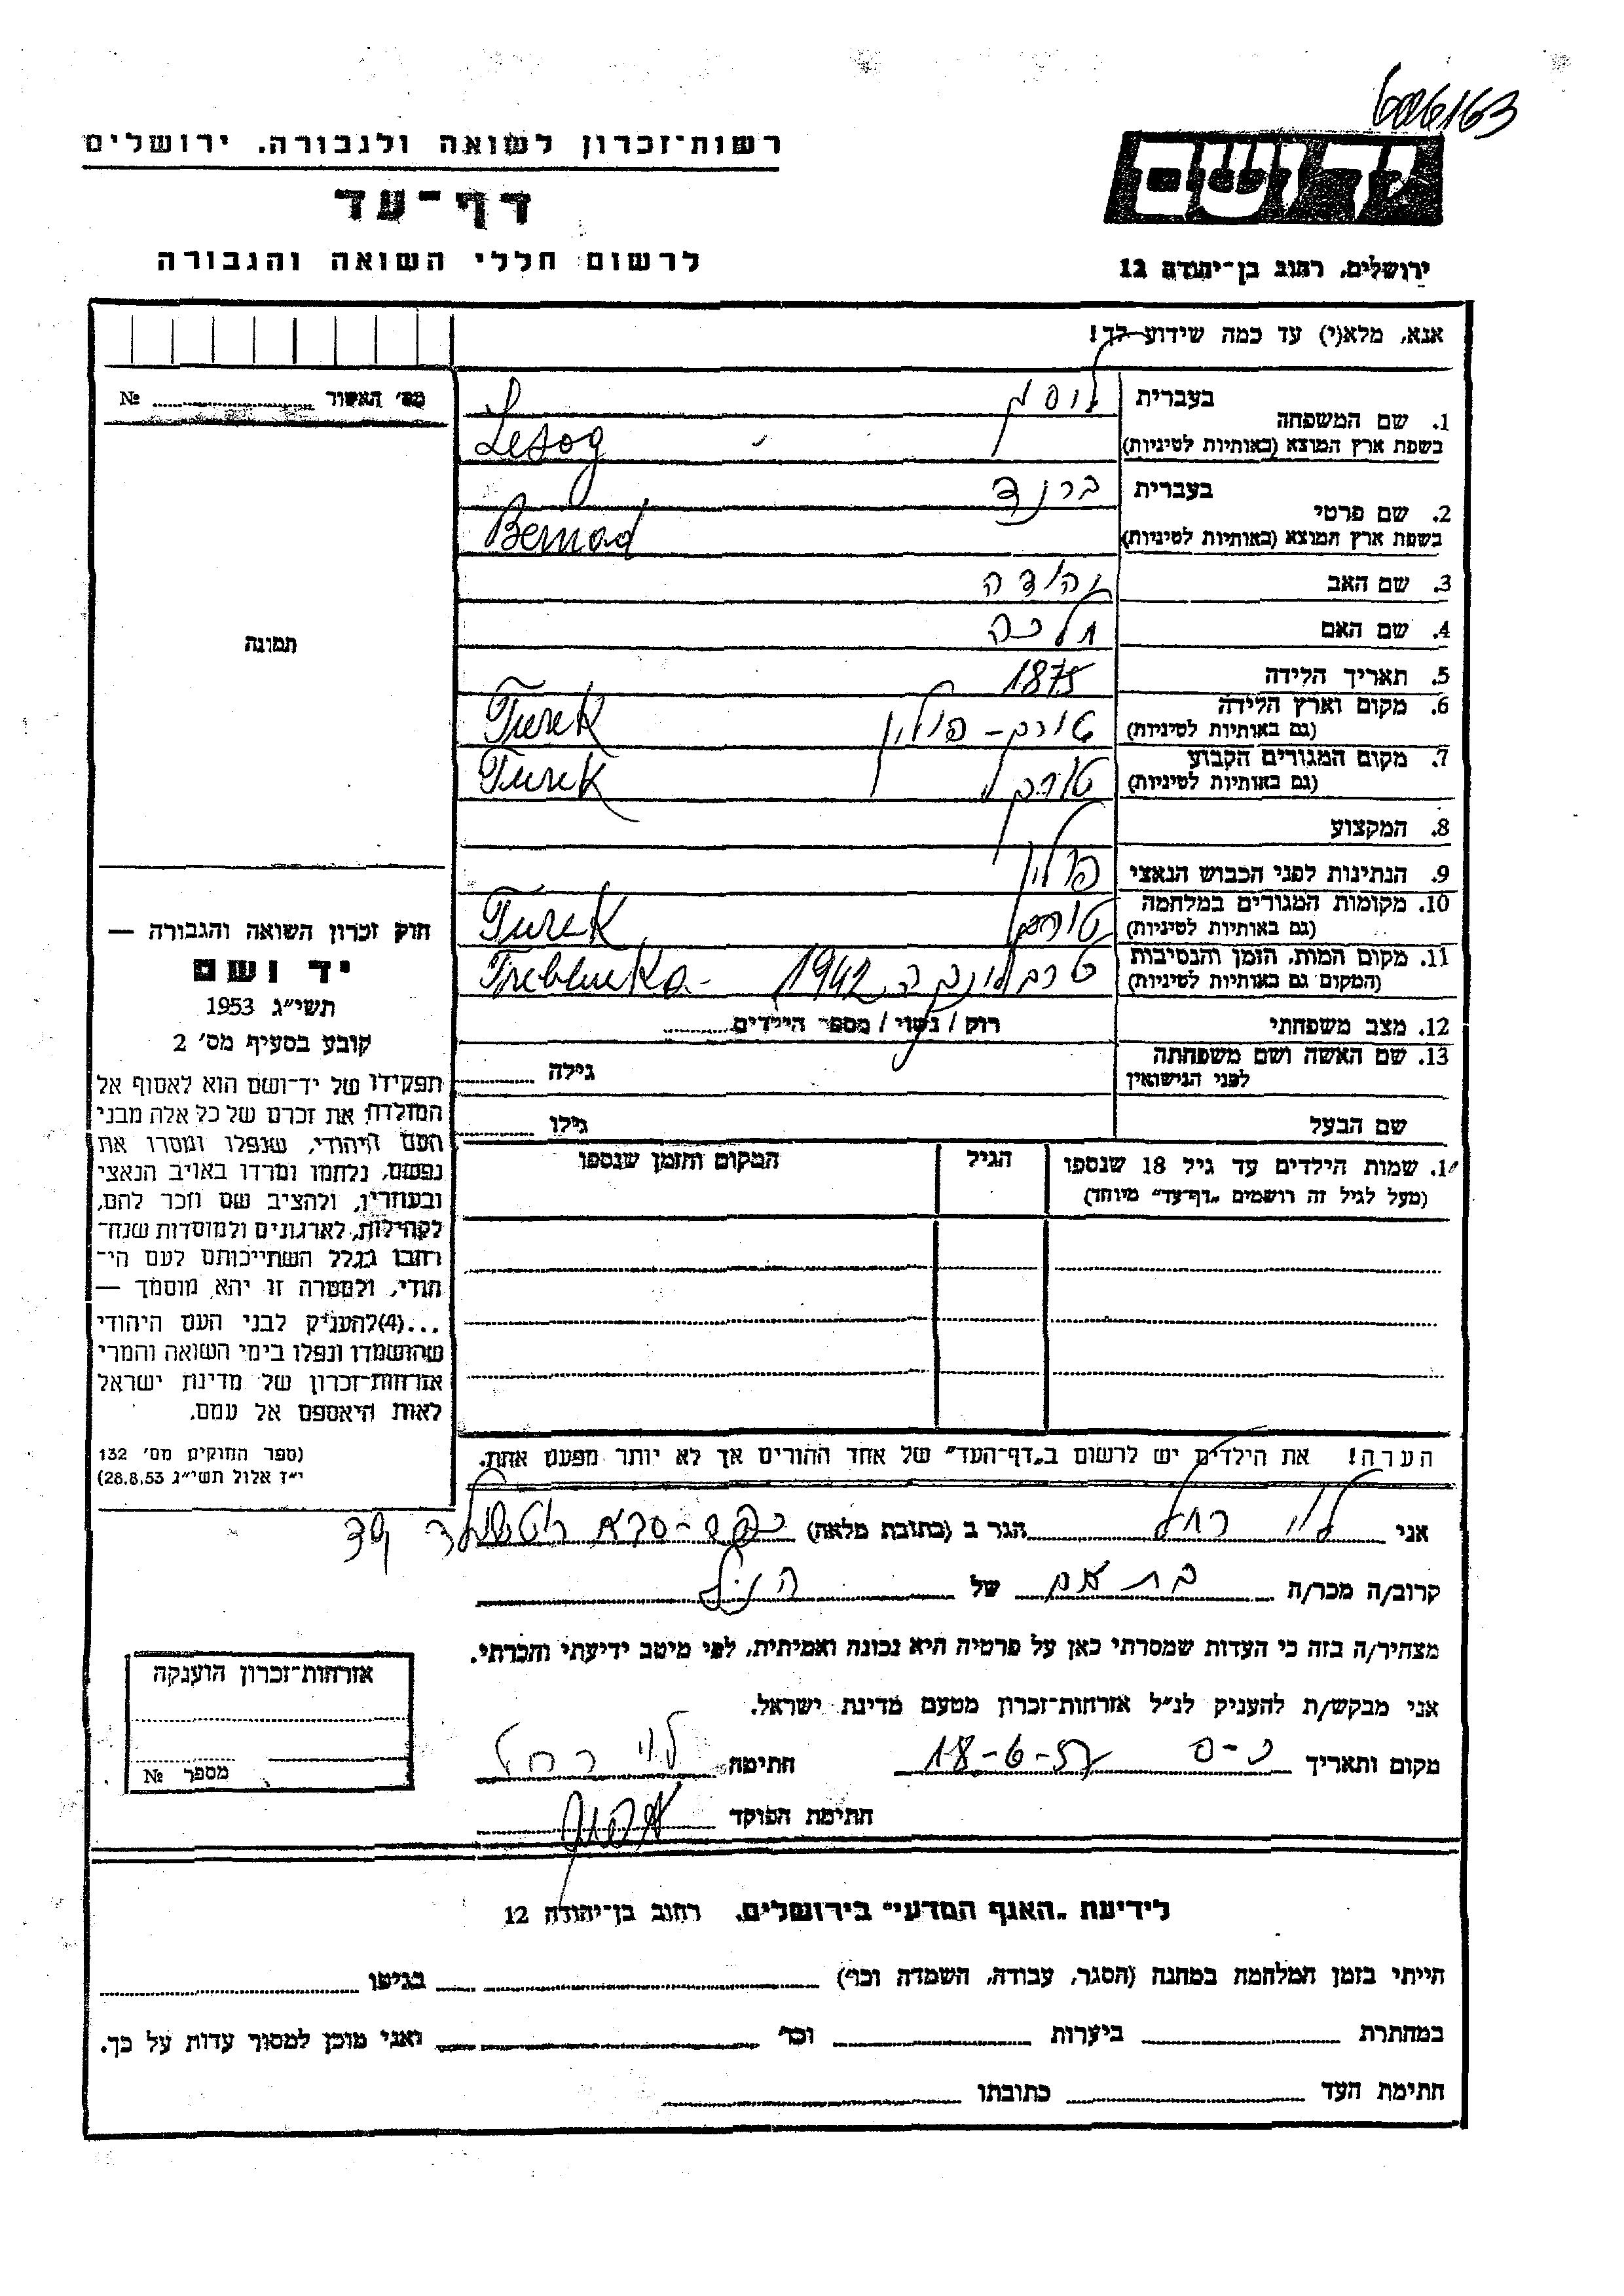 606163
רשות־זכרון לשואה ולגבורה. ירושלים
יד ושם
דף־עד
לרשום חללי השואה והגבורה
ירושלים, רחוב בן־יהודה 12
אנא, מלא(י) עד כמה שידוע לך!
מס' האשור № 
1. שם המשפחה בעברית
בשפת ארץ המוצא (באותיות לטיניות) Lesog
2. שם פרטי בעברית ברנד
בשפת ארץ המוצא (באותיות לטיניות) Bernad
3. שם האב יהודה
4. שם האם מלכה
5. תאריך הלידה 1875
6. מקום וארץ הלידה טורק - פולין Turek
(גם באותיות לטיניות)
7. מקום המגורים הקבוע טורק Turek
(גם באותיות לטיניות)
8. המקצוע
9. הנתינות לפני הכבוש הנאצי פולין
10. מקומות המגורים במלחמה טורק Turek
(גם באותיות לטיניות)
11. מקום המות, הזמן והנסיבות טרבלינקה 1942 Treblinka
(המקום גם באותיות לטיניות)
12. מצב משפחתי רוק / נשוי / מספר הילדים
13. שם האשה ושם משפחתה גילה
לפני הנישואין
שם הבעל גילו
1. שמות הילדים עד גיל 18 שנספו הגיל המקום והזמן שנספו
(מעל לגיל זה רושמים "דף־עד" מיוחד)
הערה! את הילדים יש לרשום ב"דף־העד" של אחד ההורים אך לא יותר מפעם אחת.
תמונה
חוק זכרון השואה והגבורה —
יד ושם
תשי"ג 1953
קובע בסעיף מס' 2
תפקידו של יד־ושם הוא לאסוף אל
המולדת את זכרם של כל אלה מבני
העם היהודי, שנפלו ומסרו את
נפשם, נלחמו ומרדו באויב הנאצי
ובעוזריו, ולהציב שם וזכר להם,
לקהילות, לארגונים ולמוסדות שנח־
רבו בגלל השתייכותם לעם הי־
הודי, ולמטרה זו יהא מוסמך —
...(4)להעניק לבני העם היהודי
שהושמדו ונפלו בימי השואה והמרי
אזרחות־זכרון של מדינת ישראל
לאות היאספם אל עמם.
(ספר החוקים מס' 132
י"ז אלול תשי"ג 28.8.53)
אני לוי רחל הגר ב (כתובת מלאה) כפר-סבא
קרוב/ה מכר/ה בת עם של הנ"ל
מצהיר/ה בזה כי העדות שמסרתי כאן על פרטיה היא נכונה ואמיתית, לפי מיטב ידיעתי והכרתי.
אני מבקש/ת להעניק לנ"ל אזרחות־זכרון מטעם מדינת ישראל.
מקום ותאריך כ-ס 18-6-57 חתימה לוי רחל
חתימת הפוקד
אזרחות־זכרון הוענקה
מספר №
לידיעת "האגף המדעי" בירושלים. רחוב בן־יהודה 12
הייתי בזמן המלחמה במחנה (הסגר, עבודה, השמדה וכו') בגיטו
במחתרת ביערות וכו' ואני מוכן למסור עדות על כך.
חתימת העד כתובתו